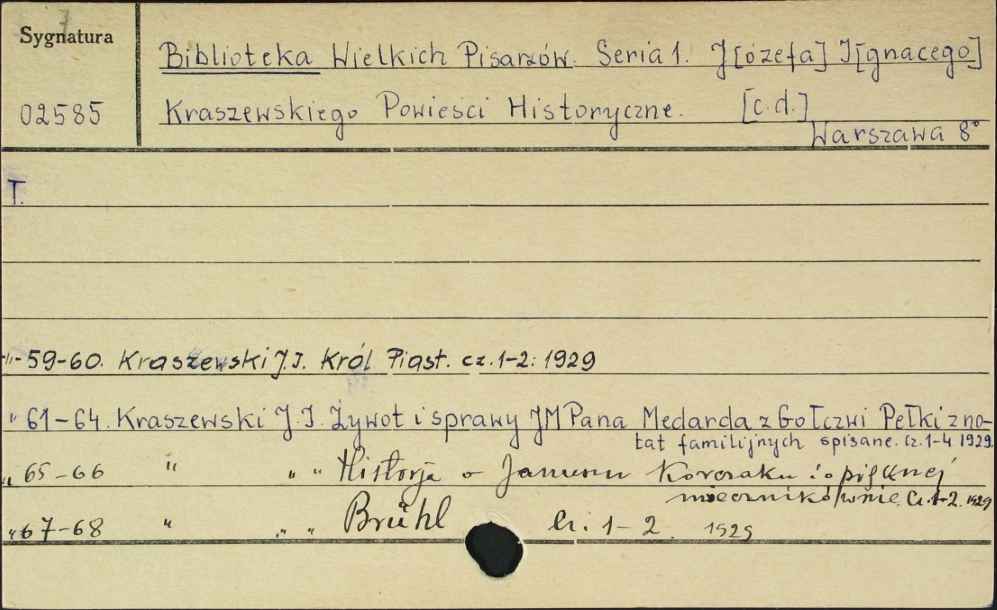 Sygnatura
02585
Biblioteka Wielkich Pisarzów. Seria 1. J[ózefa] I[gnacego]
Kraszewskiego Powieści Historyczne. [c.d.]
Warszawa 8°
T.
" 59-60. Kraszewski J.I. Król Piast. cz. 1-2: 1929
" 61-64. Kraszewski J.I. Żywot i sprawy JM Pana Medarda z Gołczwi Pełki z no-
tat familijnych spisane. Cz. 1-4 1929.
" 65-66 " " " Historja o Januszu Korczaku i o pięknej
miecznikównie. Cz. 1-2. 1929
" 67-68 " " " Brühl Cz. 1-2. 1929